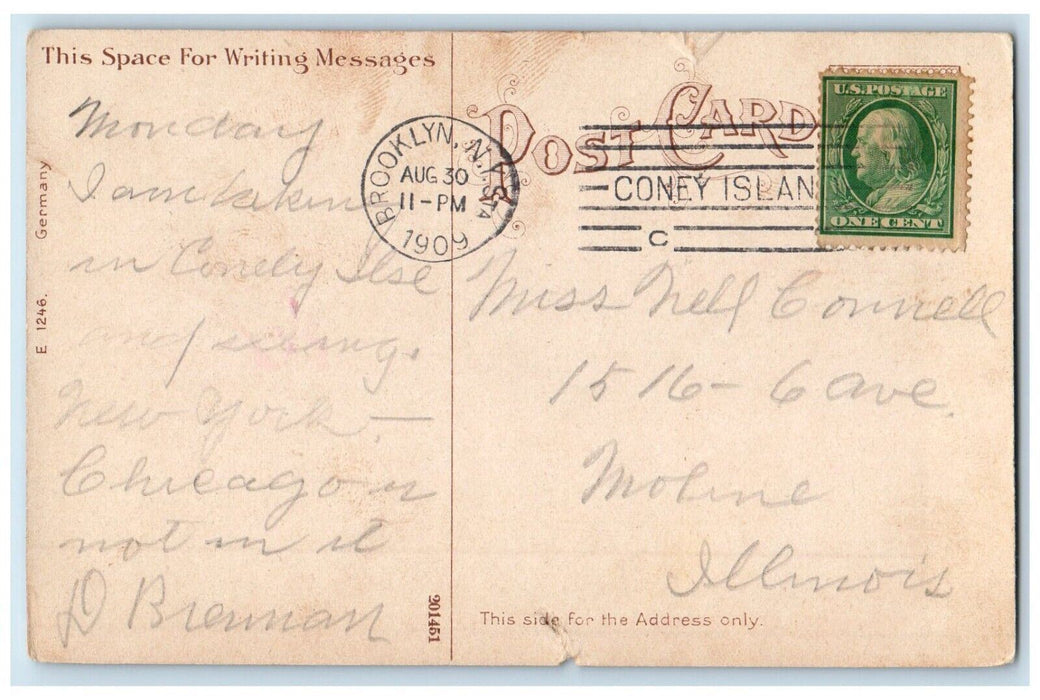 This Space For Writing Messages
POST CARD
U.S. POSTAGE
ONE CENT
BROOKLYN, N.Y. STA
AUG 30
11-PM
1909
CONEY ISLAN
C
Monday
I am takin
in Conely Ilse
and seeing
New York —
Chicago is
not in it
D Brennan
Miss Nell Connell
1516-6 ave.
Moline
Illinois
E 1246. Germany
201451
This side for the Address only.